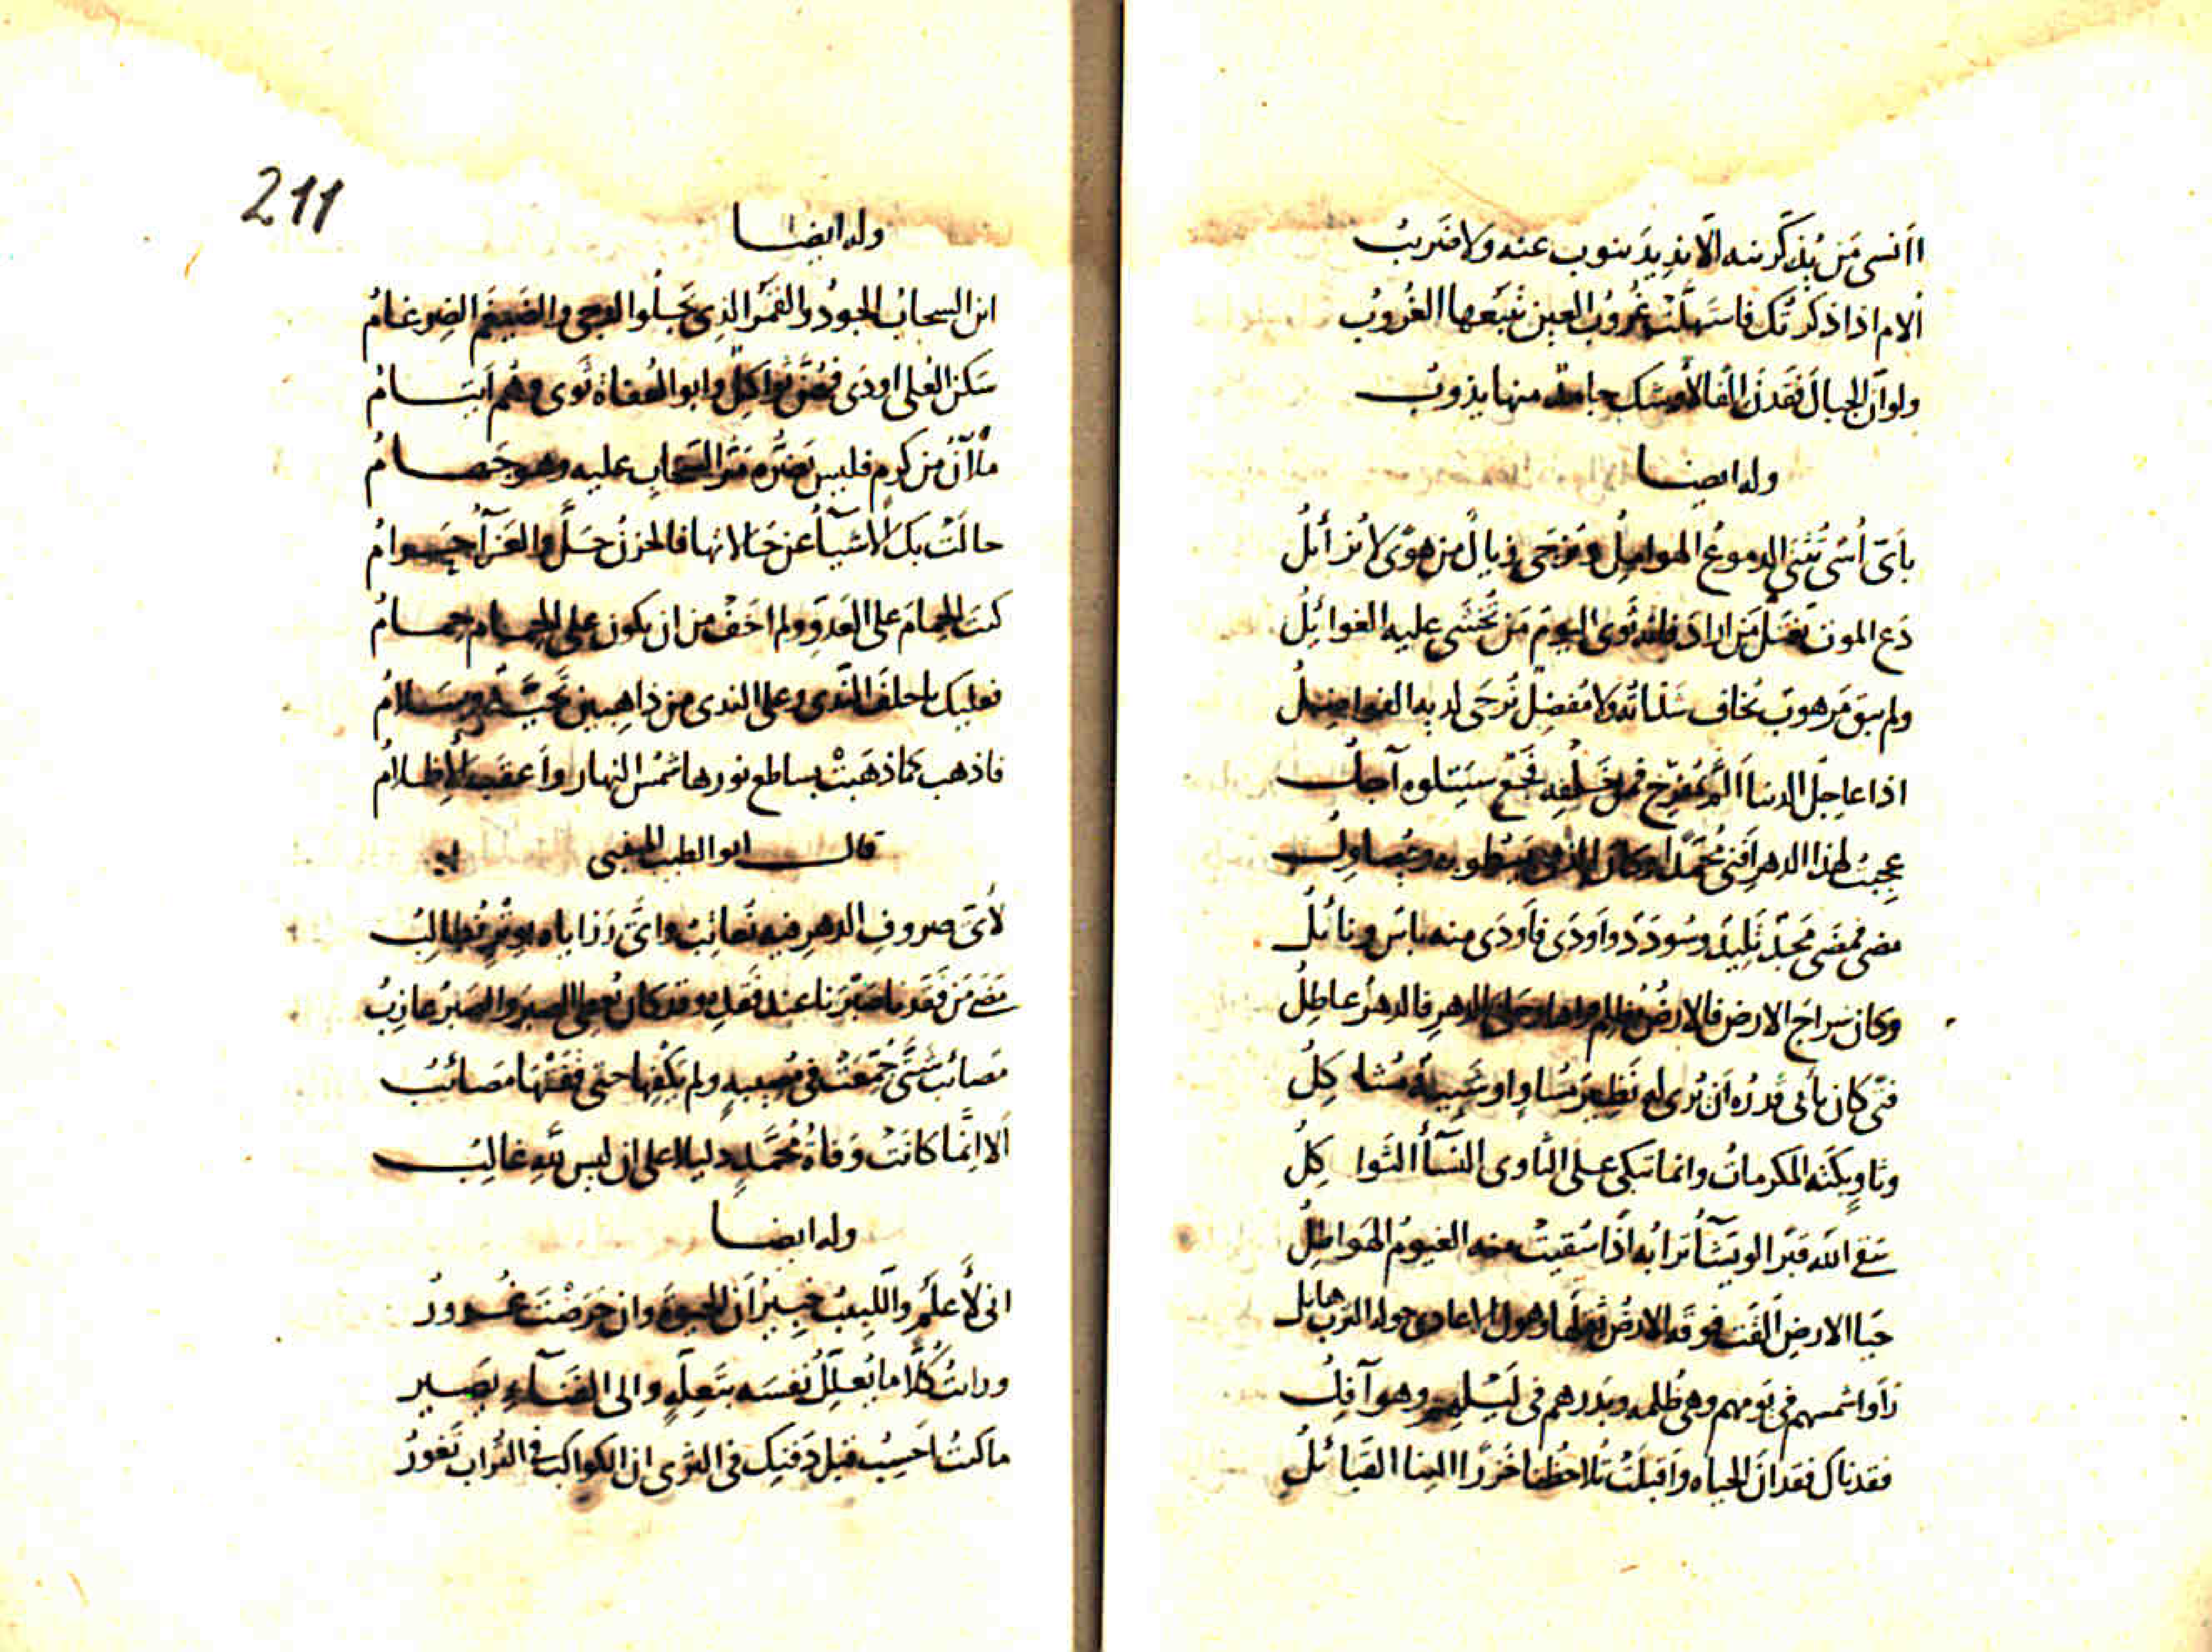 أأنسى مَن يُذكّرنيه الّا نديدَ ينوب عنه ولا ضَريبُ
ألام اذا ذكرتك فاستهلّت غُروبُ العين تتبعها الغُروبُ
ولو أنّ الجبال فقدن إلفا لأوشك جامدٌ منها يذوبُ
وله ايضا
بأىّ أسًى تُثنَى الدموعُ الهواملُ ويُرجَى زيالٌ من هوًى لا يُزائلُ
دَعِ الموت يقتل مَن اراد فانه ثوى اليوم مَن تُخشى عليه الغوائلُ
ولم يبق مرهوب تُخاف شذاتُه ولا مُفضِلٌ تُرجَى لديه الفواضلُ
اذا عاجل الدنيا ألمّ بمُفرِحٍ فمن خَلْفِه فَجْعٌ سيتلوه آجلُ
عجبتُ لهذا الدهر أفنى مُحمّدا وكان الذى يسطو به ويُصاولُ
مضى فمضى مَجدٌ تليدٌ وسُودَدٌ وأودَى فأودَى منه باسٌ ونائلُ
وكان سراجَ الارض فالارضُ مظلم وحَلىَ الدهرِ فالدهرُ عاطلُ
فتًى كان يأبى قدرُه أن يُرى له نَظيرٌ مُساوٍ او شَبيهٌ مُشاكلُ
وثاوٍ بكَتْه المكرماتُ وانما تبكى على الثاوى النسآءُ الثواكلُ
سقى الله قبرا لو يشآءُ ترابُه اذًا سُقيت منه الغيومُ الهواطلُ
حَيا الارضِ ألقت فوقه الارضُ ثقلها وهول الاعادى حوله الترب هايل
رأوا شمسهم فى يومهم وهى ظلمه وبدرهم فى ليلهم وهو آفلُ
فقدناك فقدانَ الحياه وأقبلتْ تُلاحظُنا خُزرًا الينا القبائلُ
211
وله ايضا
اين السحابُ الجودُ والقمرُ الذى يَجلُوا الدجى والضَيغمُ الضِرغامُ
سَكنُ العُلى اودى فهُنّ ثواكلٌ وابو العُفاة ثوى وهُم أيتامُ
ملآنُ من كرم فليس يضرُّه مَرُّ السحابِ عليه وهو جَهامُ
حالَتْ بك الاشيآءُ عن حالاتها فالحزنُ حِلٌّ والعَزآءُ حرامُ
كنتَ الحِمامَ على العَدُوِّ ولم اخَفْ من ان يكون على الحِمامِ حِمامُ
فعليك ياحلفَ النّدى وعلى الندى من ذاهبين تحيّةٌ وسلامُ
فاذهب كما ذهَبتْ بساطع نورها شمسُ النهار وأعقَب الإظلامُ
قال ابو الطيب المتنبى
لأىّ صروفِ الدهرِ فيه نُعاتبُ وأىّ رَزاياه بوِترٍ نُطالبُ
مضى مَن فقدنا صبرَنا عند فقدِه وقد كان يُعطى الصبرَ والصبرُ عازبُ
مصائبُ شتّى جُمِّعتْ فى مُصيبةٍ ولم يكفِها حتى قفَتْها مصائبُ
ألا انّما كانت وفاةُ مُحمّدٍ دليلا على ان ليس للهِ غالبُ
وله ايضا
انى لأعلمُ واللبيبُ خبيرٌ أنّ الحيوةَ وان حرَصْتَ غُرورُ
ورايتُ كُلًّا ما يُعلّلُ نفسَه بتَعِلّةٍ والى الفَنآءِ يصير
ما كنتُ أحسِبُ قبل دَفنِك فى الثرى ان الكواكب فى التُراب تَغورُ